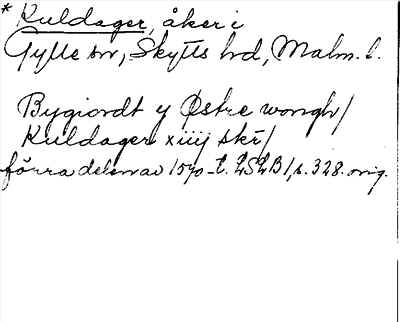 * Kuldager, åker i
Gylle sn, Skytts hd, Malm. l.
Bygiordt y Østre wongh/
Kuldager xiiij skr/
förra delen av 1570-t. LSLB1, s. 328. orig.